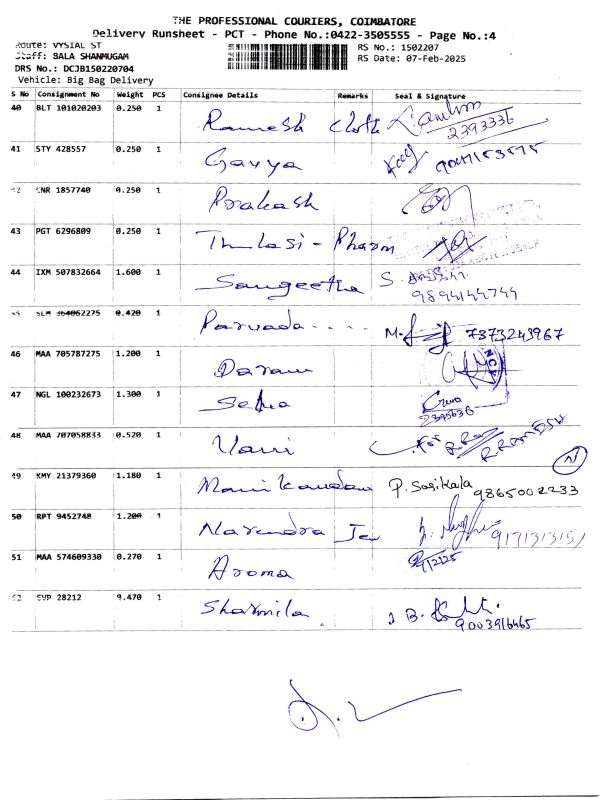 THE PROFESSIONAL COURIERS, COIMBATORE
Delivery Runsheet - PCT - Phone No.:0422-3505555 - Page No.:4
Route: VYSIAL ST
RS No.: 1502207
Staff: BALA SHANMUGAM
RS Date: 07-Feb-2025
DRS No.: DCJB150220704
Vehicle: Big Bag Delivery
S No Consignment No Weight PCS Consignee Details Remarks Seal & Signature
40 BLT 101020203 0.250 1 Ramesh Cloth
2393336
41 STY 428557 0.250 1 Gavya
42 CNR 1857740 0.250 1 Prakash
43 PGT 6296809 0.250 1 Thulasi - Pharm
44 IXM 507832664 1.600 1 Sangeetha S.
9894144744
45 SLM 364062275 0.420 1 Parvada.... M. 7373243967
46 MAA 705787275 1.200 1
47 NGL 100232673 1.300 1
48 MAA 707058833 0.520 1 Vani
49 KMY 21379360 1.180 1 Manikandan P. Sasikala 9865002233
50 RPT 9452748 1.200 1 Narendra Jew
51 MAA 574609330 0.270 1 Aroma
52 SVP 28212 9.470 1 Sharmila
9003916465